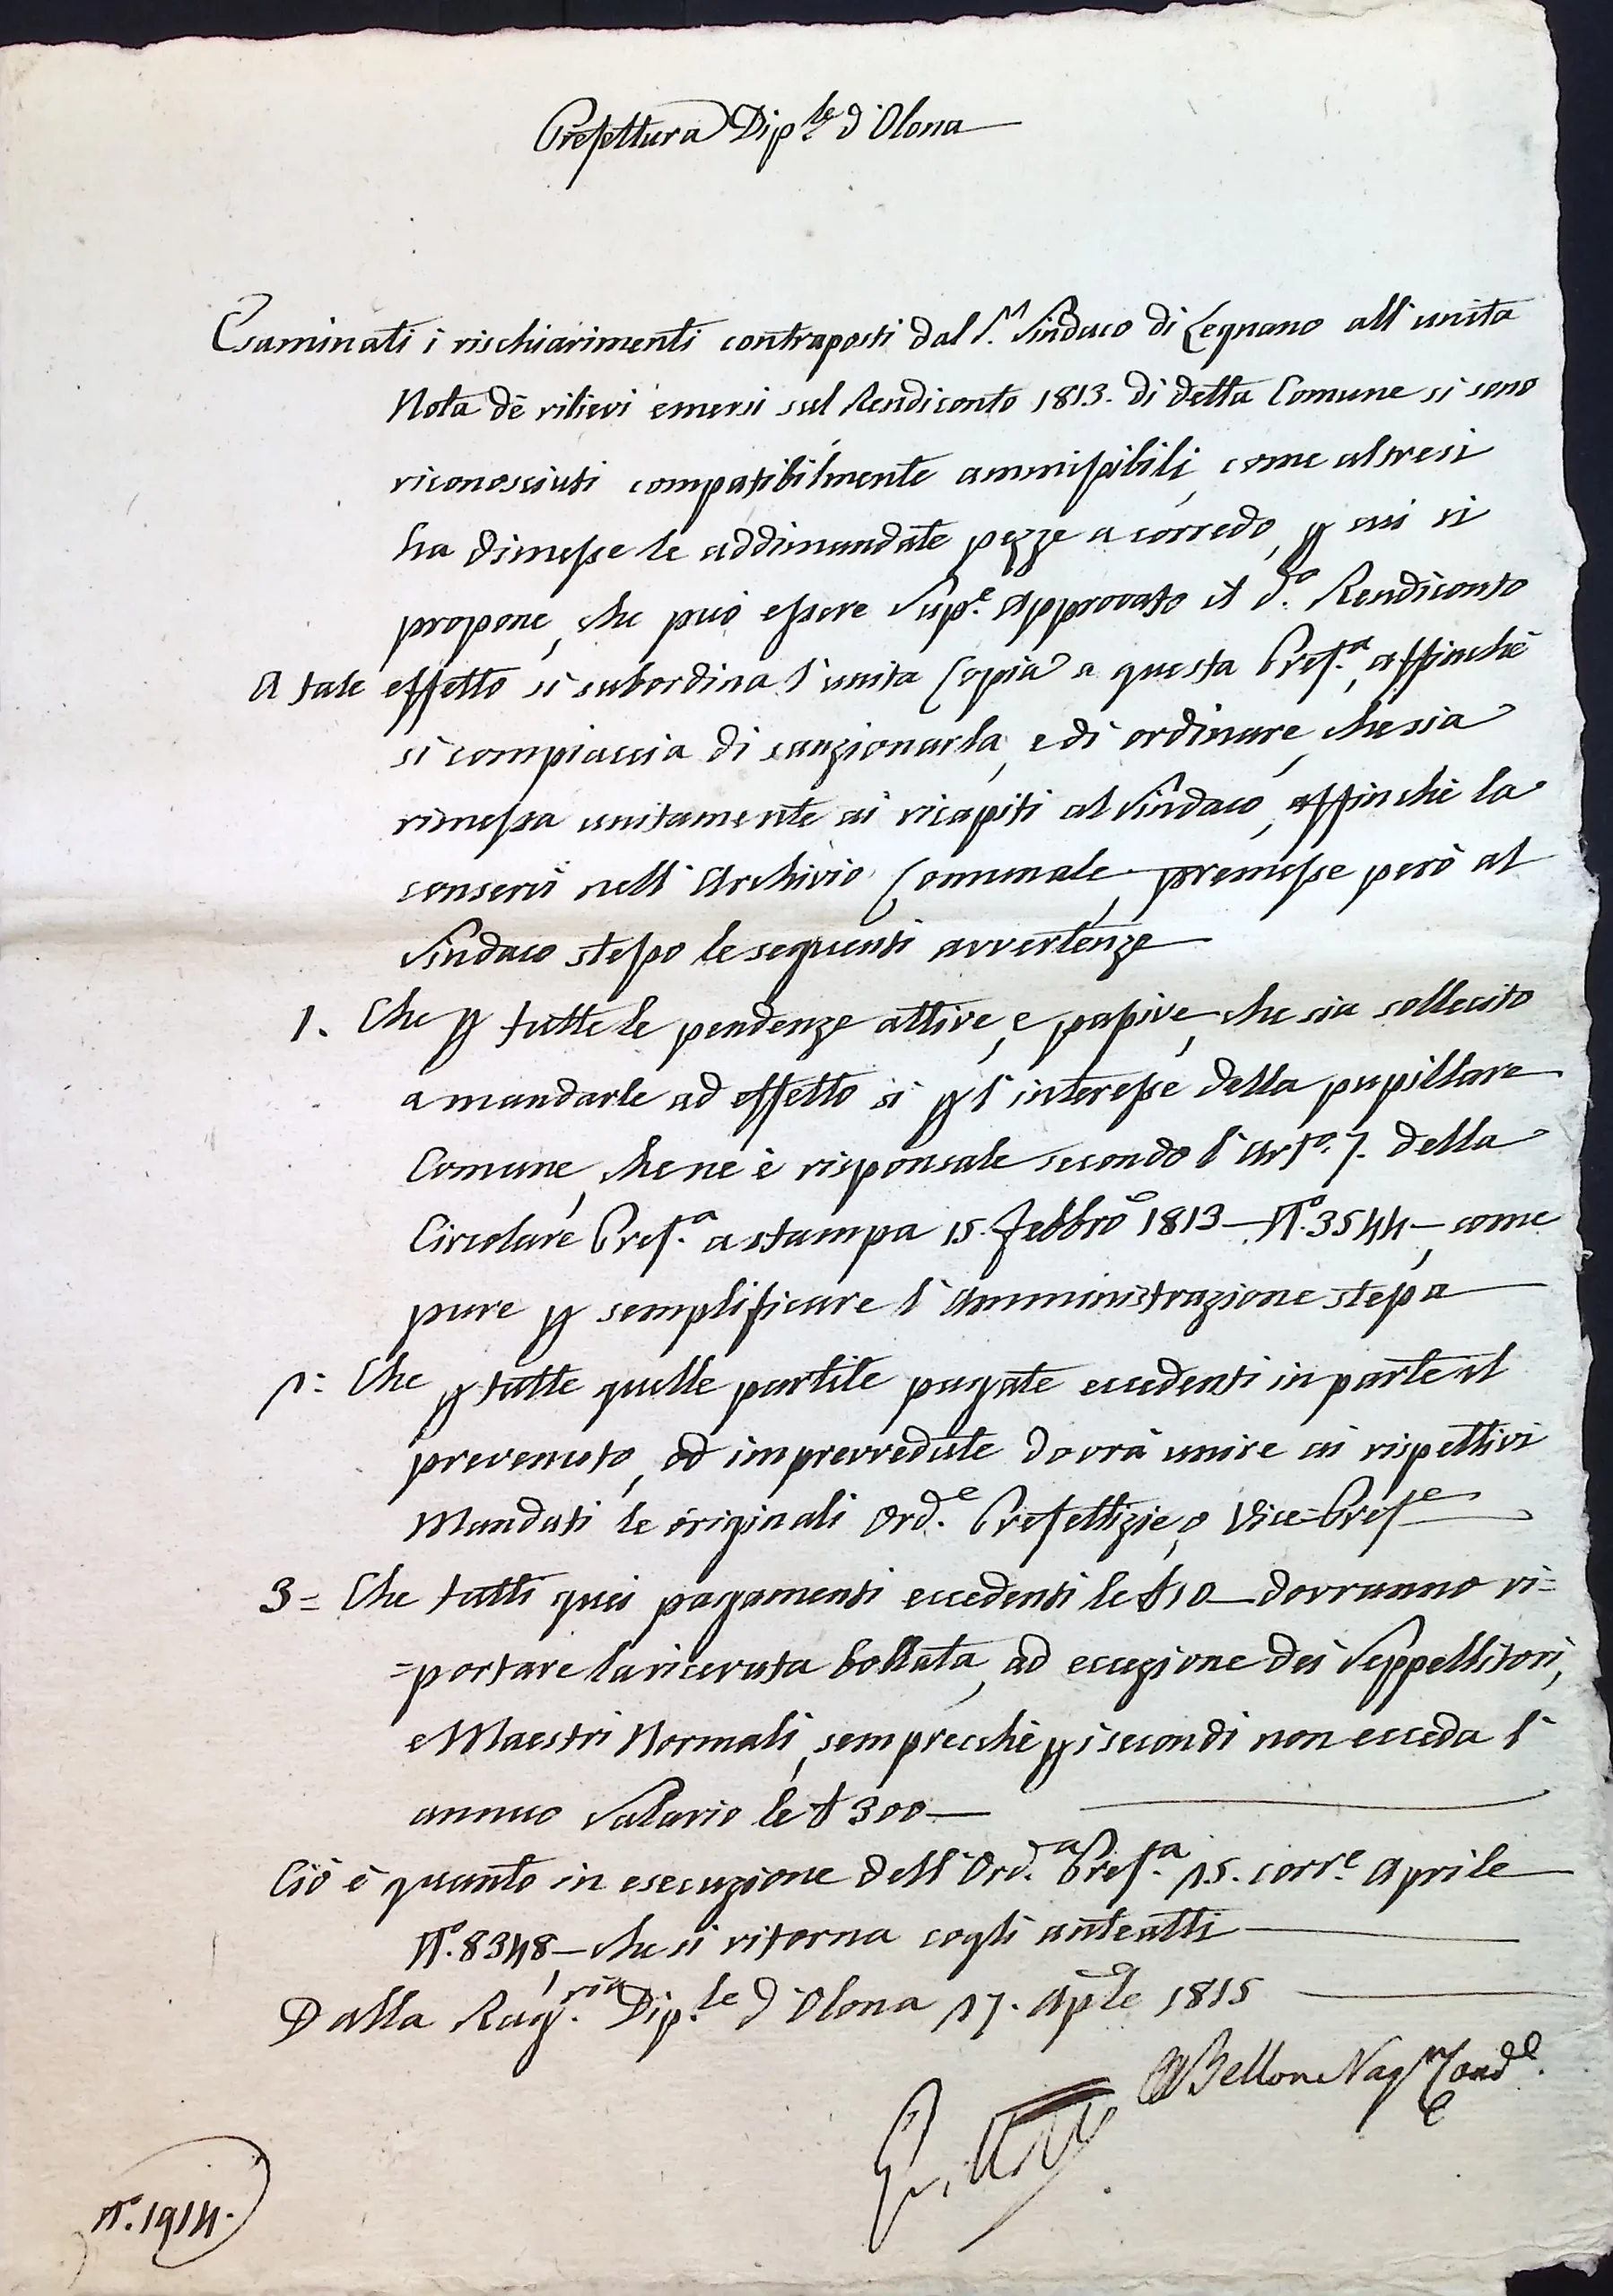 Prefettura Dip.le d'Olona
Esaminati i rischiarimenti contraposti dal S.r Sindaco di Legnano all'unita
Nota dè rilievi emersi sul Rendiconto 1813. di detta Comune si sono
riconosciuti compatibilmente ammissibili, come altresi
ha dimesse le addimandate pezze a corredo, p cui si
propone, che può essere Sup.e approvato il d.o Rendiconto
A tale effetto si subordina l'unita Copia a questa Pref.a, affinchè
si compiaccia di sanzionarla, e di ordinare, che sia
rimessa unitamente ai ricapiti al Sindaco, affinchè la
conservi nell'Archivio Comunale, premesse però al
Sindaco stesso le seguenti avvertenze
1. Che p tutte le pendenze attive, e passive, che sia sollecito
a mandarle ad effetto sì p l'interesse della pupillare
Comune, che ne è risponsale secondo l'Art.o 7. della
Circolare Pref.a a stampa 15. Febbro 1813 - N.o 3544 -, come
pure p semplificare l'Amministrazione stessa
2: Che p tutte quelle partite pagate eccedenti in parte il
prevenuto, od imprevvedute dovrà unire ai rispettivi
Mandati le originali Ord.e Prefettizie, o Vice=Prefe
3= Che tutti quei pagamenti eccedenti le £ 10 - dovranno ri=
=portare la ricevuta bollata, ad eccezione dei Seppellitori,
e Maestri Normali, semprecchè p i secondi non ecceda l'
annuo Salario le £ 300 -
Ciò è quanto in esecuzione dell'Ord.a Pref.a 15. corr.e Aprile
N.o 8348, - che si ritorna cogli anteatti
Dalla Rag.ria Dip.le d'Olona 17. Aple 1815
Bellon
N.o 1914.